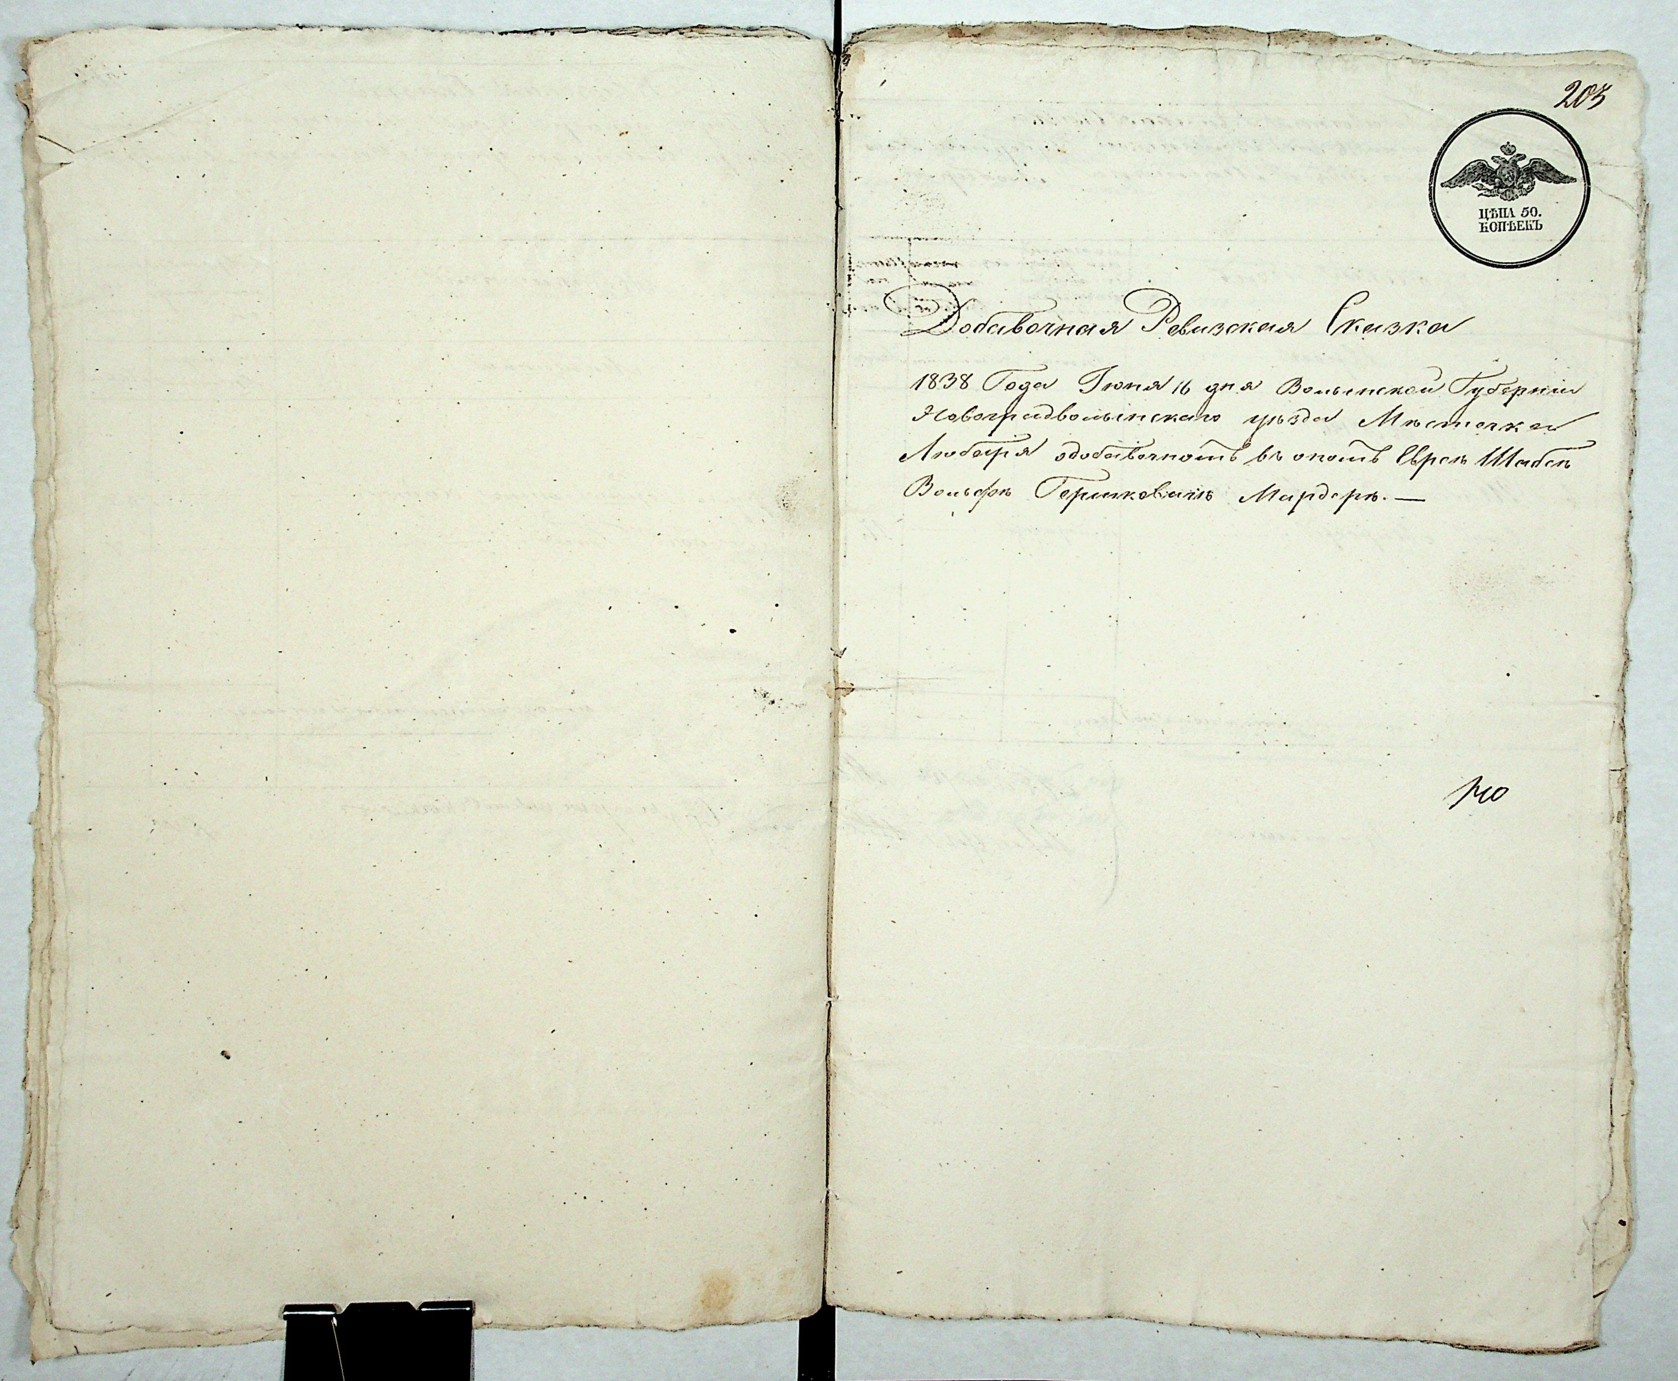 203
ЦѢНА 50.
КОПѢЕКЪ
Добавочная Ревизская Сказка
1838 Года Іюня 16 дня Волынской Губерніи
Новоградволынскаго уѣзда Мѣстечка
Любаря одобавочномъ въ ономъ Евреѣ
Вольфѣ Гершковичѣ Мардерѣ.—